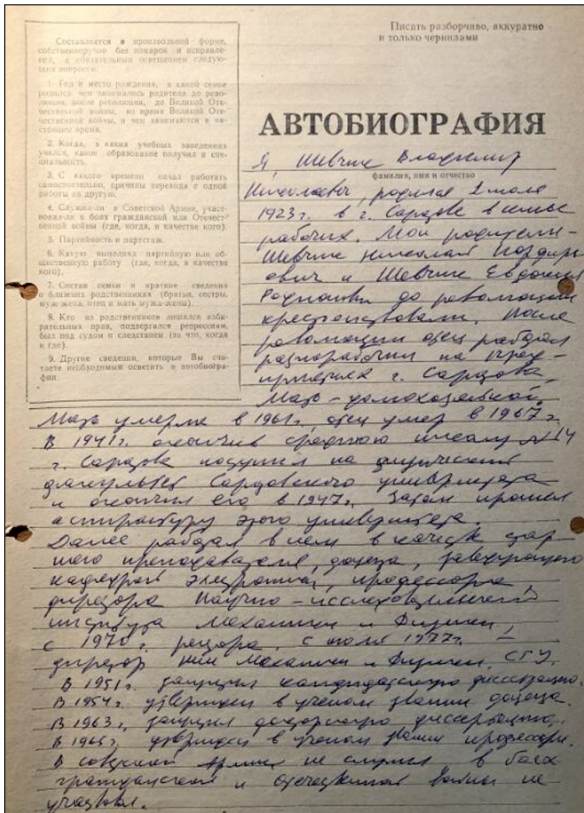 Писать разборчиво, аккуратно
и только чернилами
Составляется в произвольной форме,
собственноручно без помарок и исправле-
ний, с обязательным освещением следую-
щих вопросов:
1. Год и место рождения, в какой семье
родился, чем занимались родители до рево-
люции, после революции, до Великой Оте-
чественной войны, во время Великой Отече-
ственной войны, и чем занимаются в на-
стоящее время.
2. Когда, в каких учебных заведениях
учился, какое образование получил и спе-
циальность.
3. С какого времени начал работать
самостоятельно, причины перехода с одной
работы на другую.
4. Служил ли в Советской Армии, участ-
вовал ли в боях гражданской или Отечест-
венной войны (где, когда, в качестве кого).
5. Партийность и партстаж.
6. Какую выполнял партийную или об-
щественную работу (где, когда, в качестве
кого).
7. Состав семьи и краткие сведения
о близких родственниках (братья, сестры,
муж-жена, отец и мать мужа-жены).
8. Кто из родственников лишался изби-
рательных прав, подвергался репрессиям,
был под судом и следствием (за что, когда
и где).
9. Другие сведения, которые Вы счи-
таете необходимым осветить в автобиогра-
фии.
АВТОБИОГРАФИЯ
Я, Шевчик Владимир
фамилия, имя и отчество
Николаевич, родился 2 июля
1923 г. в г. Сардове в семье
рабочих. Мои родители-
Шевчик Николай
ович и Шевчик Евдокия
до революции
крестьянствовали. После
революции отец работал
разнорабочим на пред-
приятиях г.
Мать - домохозяйкой.
Мать умерла в 1961 г., отец умер в 1967 г.
В 1941 г. окончив среднюю школу № 14
г. поступил на физический
факультет университета
и окончил его в 1947 г. Затем прошел
аспирантуру этого университета.
Далее работал в нем в качестве стар-
шего преподавателя, доцента, заведующего
кафедрой электроники, профессора,
директора Научно-исследовательского
института Механики и Физики,
с 1970 г. ректора, с июля 1977 г. -
директор НИИ Механики и Физики СГУ.
В 1951 г. защитил кандидатскую диссертацию.
В 1954 г. утвержден в ученом звании доцента.
В 1963 г. защитил докторскую диссертацию.
В г. утвержден в ученом звании профессора.
В советской армии не служил, в боях
гражданской и отечественной войны не
участвовал.